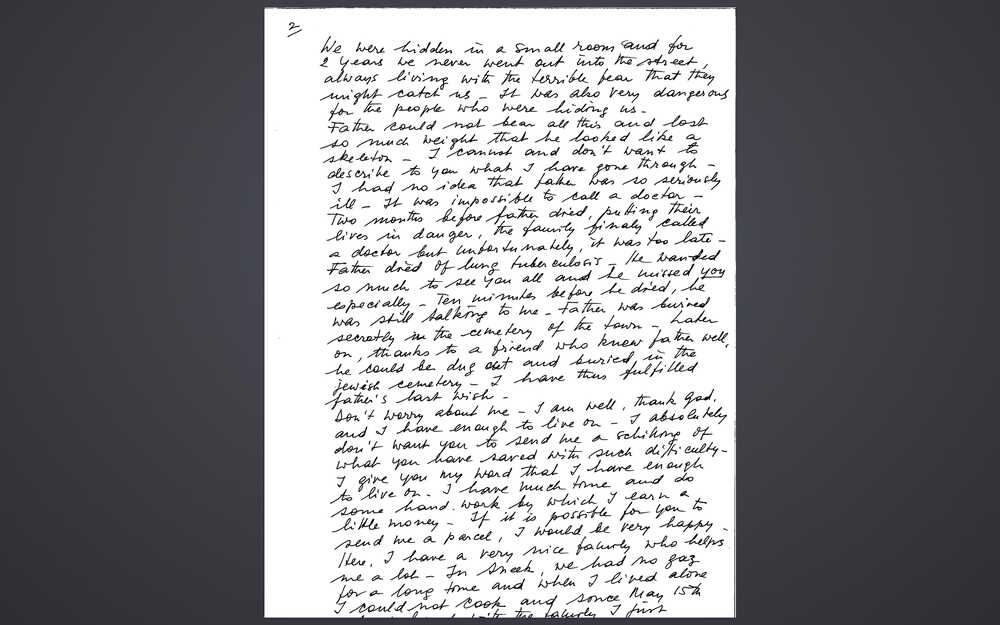 2
We were hidden in a small room and for
2 years we never went out into the street,
always living with the terrible fear that they
might catch us - It was also very dangerous
for the people who were hiding us -
Father could not bear all this and lost
so much weight that he looked like a
skeleton - I cannot and don't want to
describe to you what I have gone through -
I had no idea that father was so seriously
ill - It was impossible to call a doctor -
Two months before father died, putting their
lives in danger, the family finaly called
a doctor but unfortunately, it was too late -
Father died of lung tuberculosis - He wanted
so much to see you all and he missed you
especially - Ten minutes before he died, he
was still talking to me - Father was buried
secretly in the cemetery of the town - Later
on, thanks to a friend who knew father well,
he could be dug out and buried in the
jewish cemetery - I have thus fulfilled
father's last wish -
Don't worry about me - I am well, thank God,
and I have enough to live on - I absolutely
don't want you to send me a schiling of
what you have saved with such difficulty -
I give you my word that I have enough
to live on - I have much time and do
some hand-work by which I earn a
little money - If it is possible for you to
send me a parcel, I would be very happy -
Here, I have a very nice family who helps
me a lot - In Sneek, we had no gaz
for a long time and when I lived alone
I could not cook and since May 15th
with the family I first